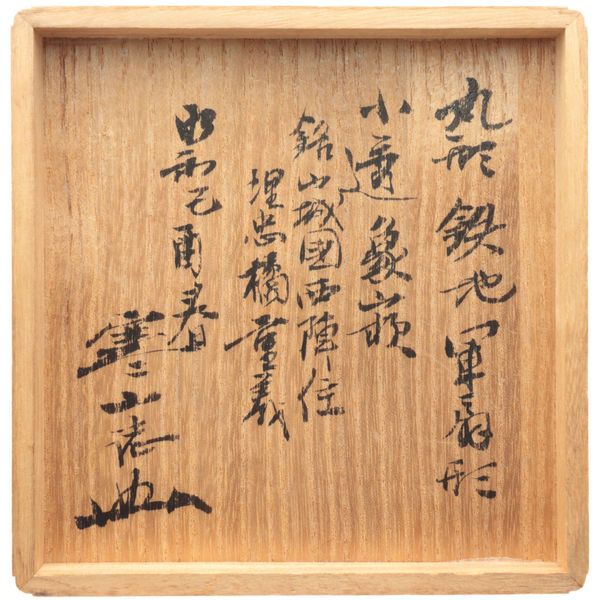 丸形鉄地軍扇形
小透象嵌
銘山城國西陣住
埋忠橘重義
昭和己酉春
寒山誌